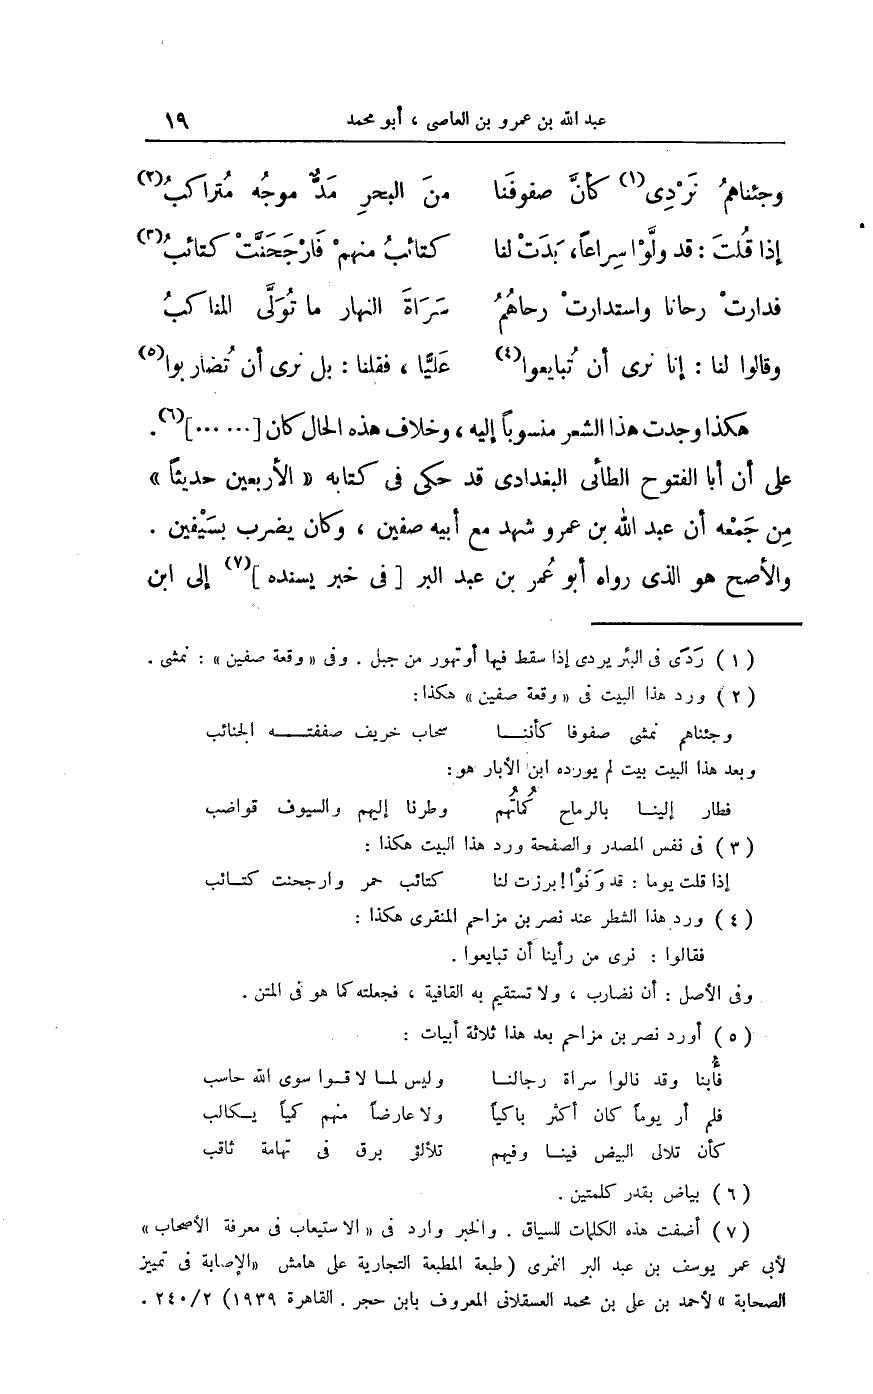 عبد الله بن عمرو بن العاصى ، أبو محمد ١٩
وجئناهمُ نَرْدِى(١) كأنَّ صفوفَنا منَ البحرِ مَدٌّ موجُه مُتراكبُ(٢)
إذا قُلتَ : قد ولَّوْا سِراعاً، بَدَتْ لنا كتائبُ منهمْ فَارْجَحَنَّتْ كتائبُ(٣)
فدارتْ رحانا واستدارتْ رحاهُمُ سَرَاةَ النهار ما تُوَلَّى المناكبُ
وقالوا لنا : إنا نرى أن تُبايعوا(٤) عَليًّا ، فقلنا : بل نرى أن تُضاربوا(٥)
هكذا وجدت هذا الشعر منسوباً إليه ، وخلاف هذه الحال كان [ ... ... ](٦) .
على أن أبا الفتوح الطائى البغدادى قد حكى فى كتابه « الأربعين حديثاً »
مِن جَمْعه أن عبد الله بن عمرو شهد مع أبيه صفين ، وكان يضرب بسَيْفين .
والأصح هو الذى رواه أبو عُمر بن عبد البر [ فى خبر يسنده ](٧) إلى ابن
( ١ ) رَدَى فى البئر يردى إذا سقط فيها أو تهور من جبل . وفى « وقعة صفين » : نمشى .
( ٢ ) ورد هذا البيت فى « وقعة صفين » هكذا :
وجئناهم نمشى صفوفا كأننــا سحاب خريف صففتــه الجنائب
وبعد هذا البيت بيت لم يورده ابن الأبار هو :
فطار إلينــا بالرماح كُماتُهُم وطرنا إليهم والسيوف قواضب
( ٣ ) فى نفس المصدر والصفحة ورد هذا البيت هكذا :
إذا قلت يوما : قد وَنَوْا ! برزت لنا كتائب حمر وارجحنت كتــائب
( ٤ ) ورد هذا الشطر عند نصر بن مزاحم المنقرى هكذا :
فقالوا : نرى من رأينا أن تبايعوا .
وفى الأصل : أن نضارب ، ولا تستقيم به القافية ، فجعلته كما هو فى المتن .
( ٥ ) أورد نصر بن مزاحم بعد هذا ثلاثة أبيات :
فأُبنا وقد نالوا سراة رجالنــا وليس لمــا لاقــوا سوى الله حاسب
فلم أر يوماً كان أكثر باكياً ولا عارضاً منهم كمياً يــكالب
كأن تلالى البيض فينــا وفيهم تلألؤ برق فى تهامة ثاقب
( ٦ ) بياض بقدر كلمتين .
( ٧ ) أضفت هذه الكلمات للسياق . والخبر وارد فى « الاستيعاب فى معرفة الأصحاب »
لأبى عمر يوسف بن عبد البر النمرى ( طبعة المطبعة التجارية على هامش « الإصابة فى تمييز
الصحابة » لأحمد بن على بن محمد العسقلانى المعروف بابن حجر . القاهرة ١٩٣٩) ٢/٢٤٠ .